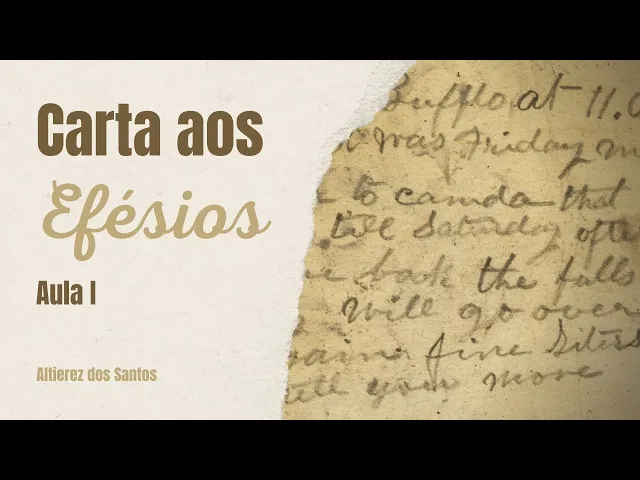 Carta aos
Efésios
Aula I
Altierez dos Santos
at 11.
was Friday
to canada that
till Saturday
back the falls
will go over
fine
tell your more